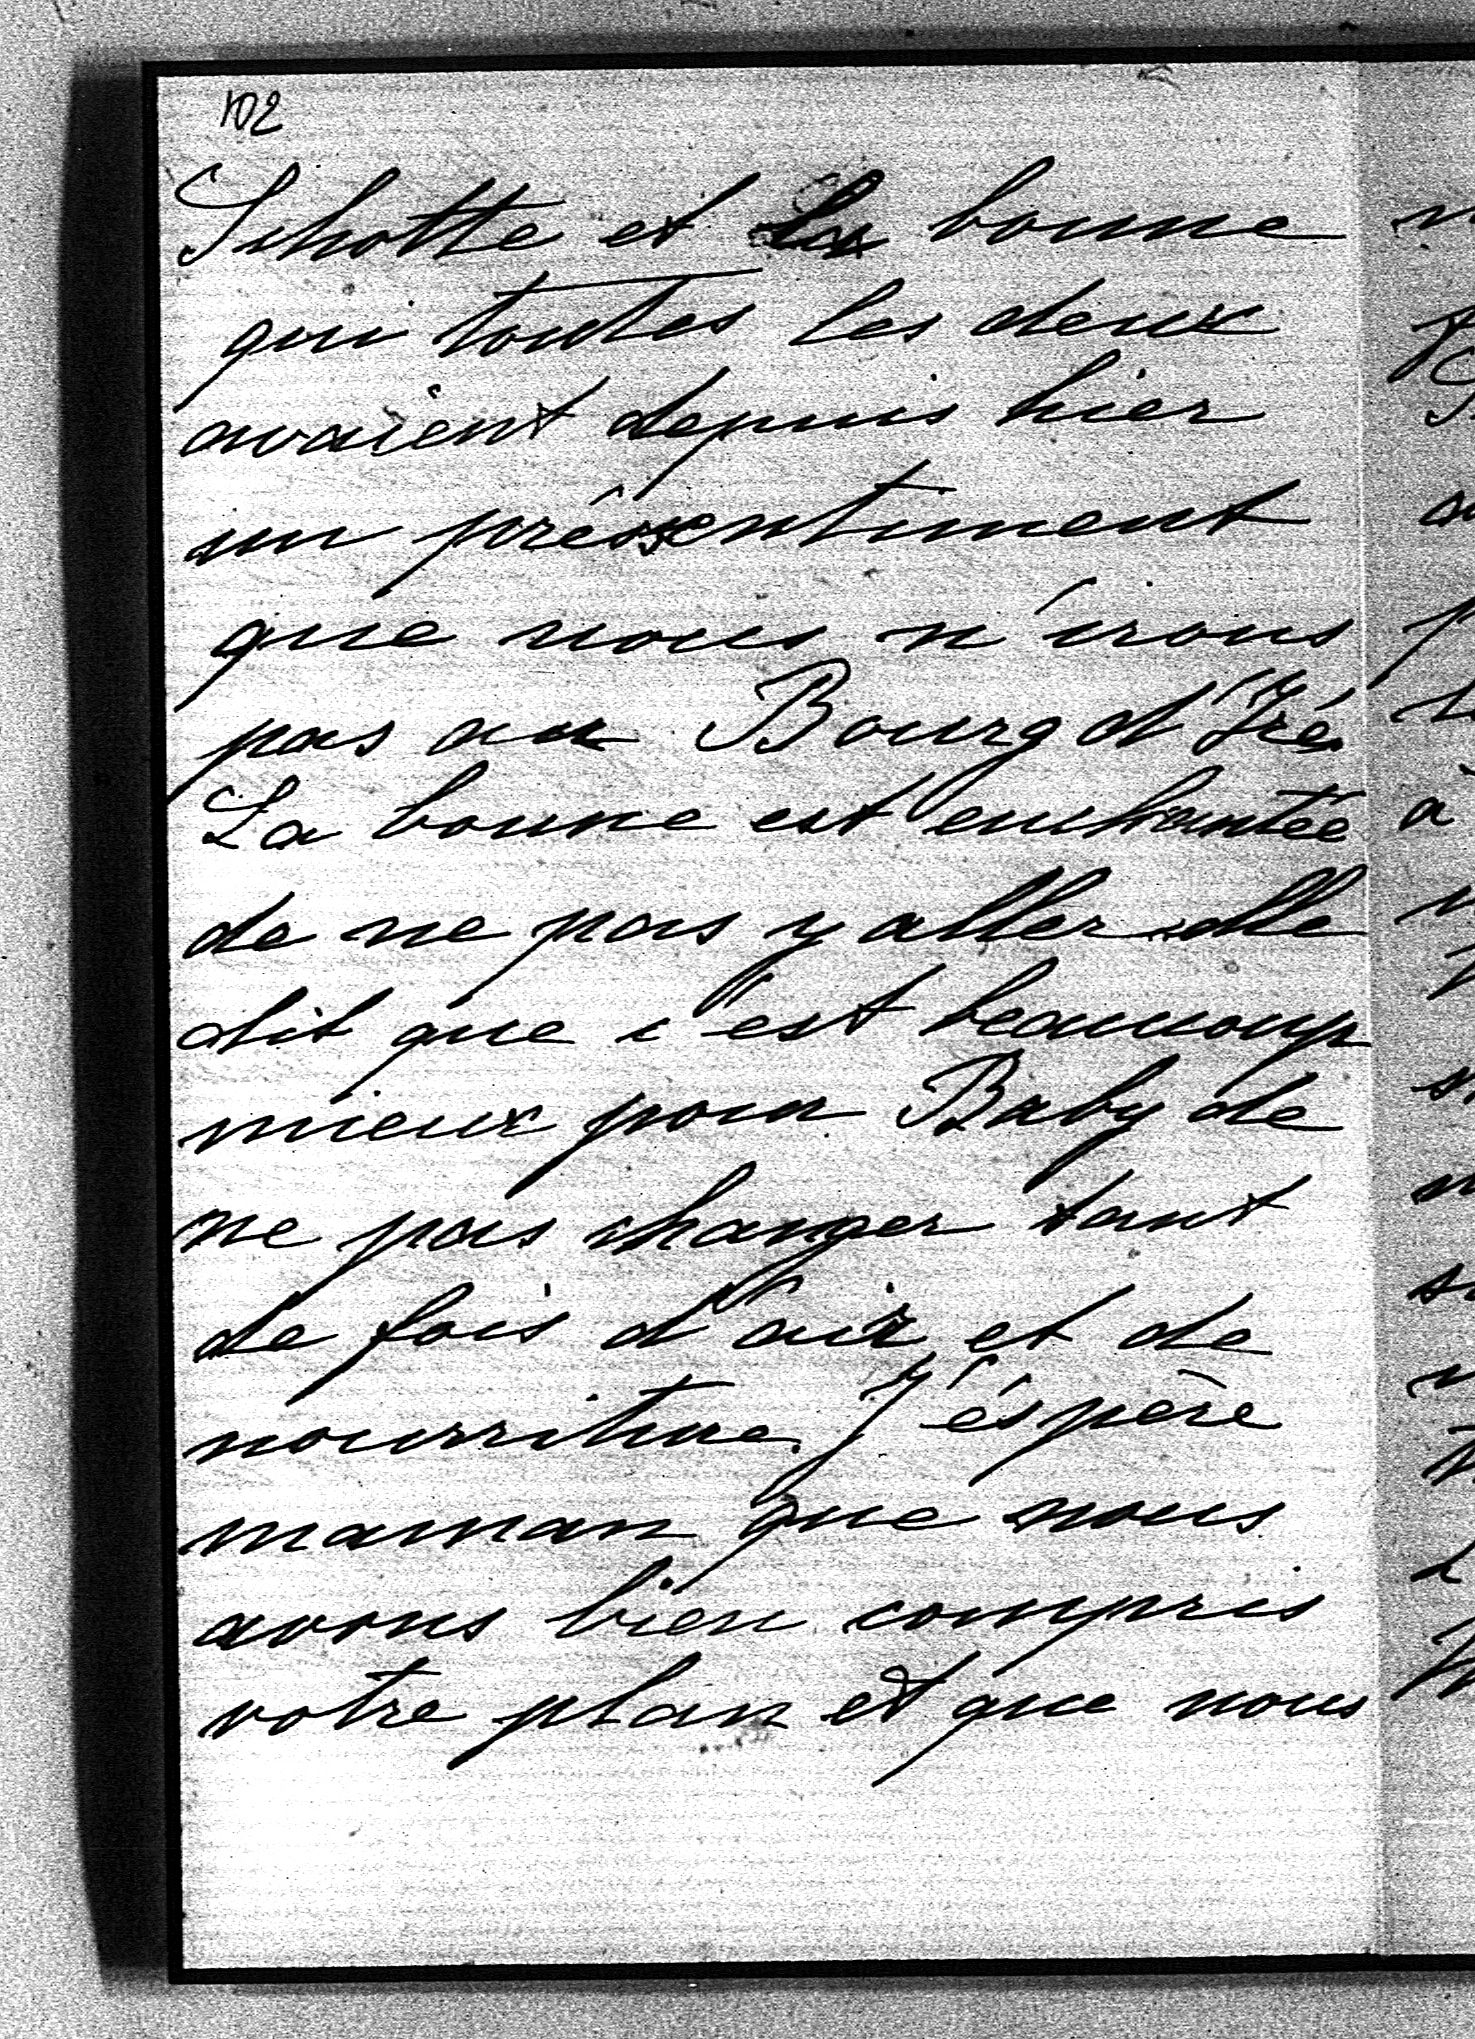 102
Schotte et la bonne
qui toutes les deux
avaient depuis hier
un préssentiment
que nous n'irons
pas au Bourg d'Iré.
La bonne est enchantée
de ne pas y aller elle
dit que c'est beaucoup
mieux pour Baby de
ne pas changer tant
de fois d'air et de
nourriture. J'éspère
maman que nous
avons bien compris
votre plan et que nous